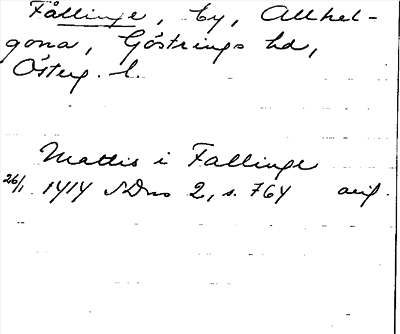 Fållinge, by, Allhel-
gona, Göstrings hd,
Österg. l.
Mattis i Fallinge
26/1 1414 SDns 2, s. 764 avs.